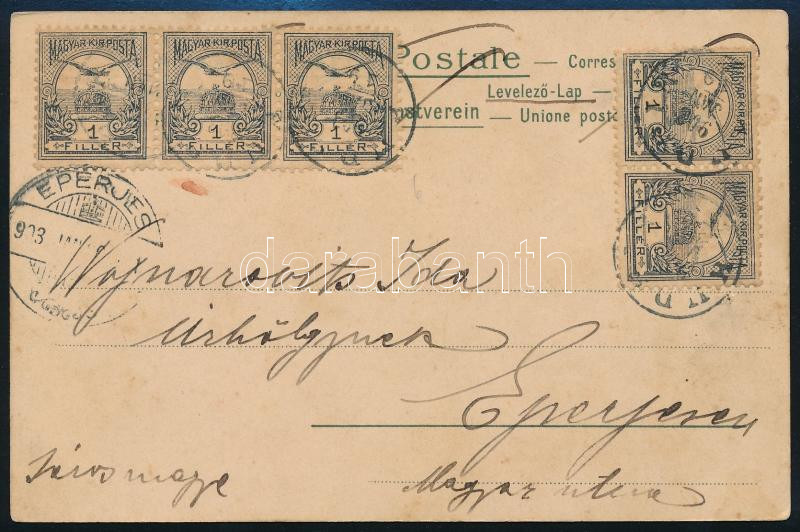 MAGYAR·KIR·POSTA MAGYAR·KIR·POSTA MAGYAR·KIR·POSTA
1 1 1
FILLÉR FILLÉR FILLÉR
Postale
Corres
Levelező-Lap —
stverein — Unione posta
MAGYAR·KIR·POSTA
1
FILLÉR
MAGYAR·KIR·POSTA
1
FILLÉR
EPERJES
903 JAN
darabanth
Wojnarovits Ida
Urhölgynek
Eperjesen
Sáros megye
Magyar utca